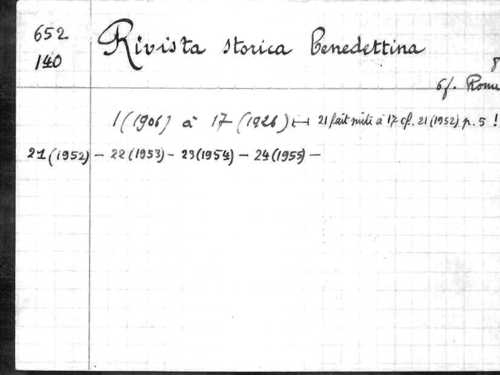 652 Rivista storica Benedettina
140
8
6f. Rome
1 (1906) à 17 (1926) ⟷ 21 fait suite à 17 cf. 21 (1952) p. 5 !
21 (1952) – 22 (1953) – 23 (1954) – 24 (1955) –